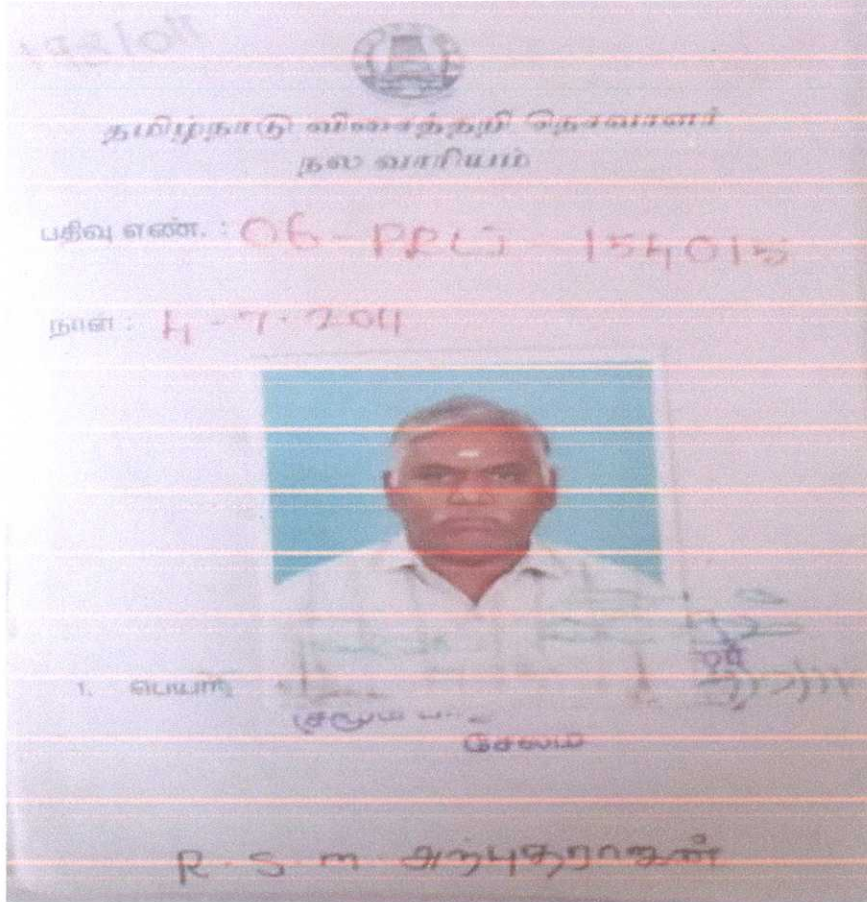 தமிழ்நாடு விசைத்தறி நெசவாளர்
நல வாரியம்
பதிவு எண். : 06 - PRLJ - 154015
நாள் : 4 - 7 - 2011
1. பெயர்
சேலம்
R. S. m. அற்புதராஜன்